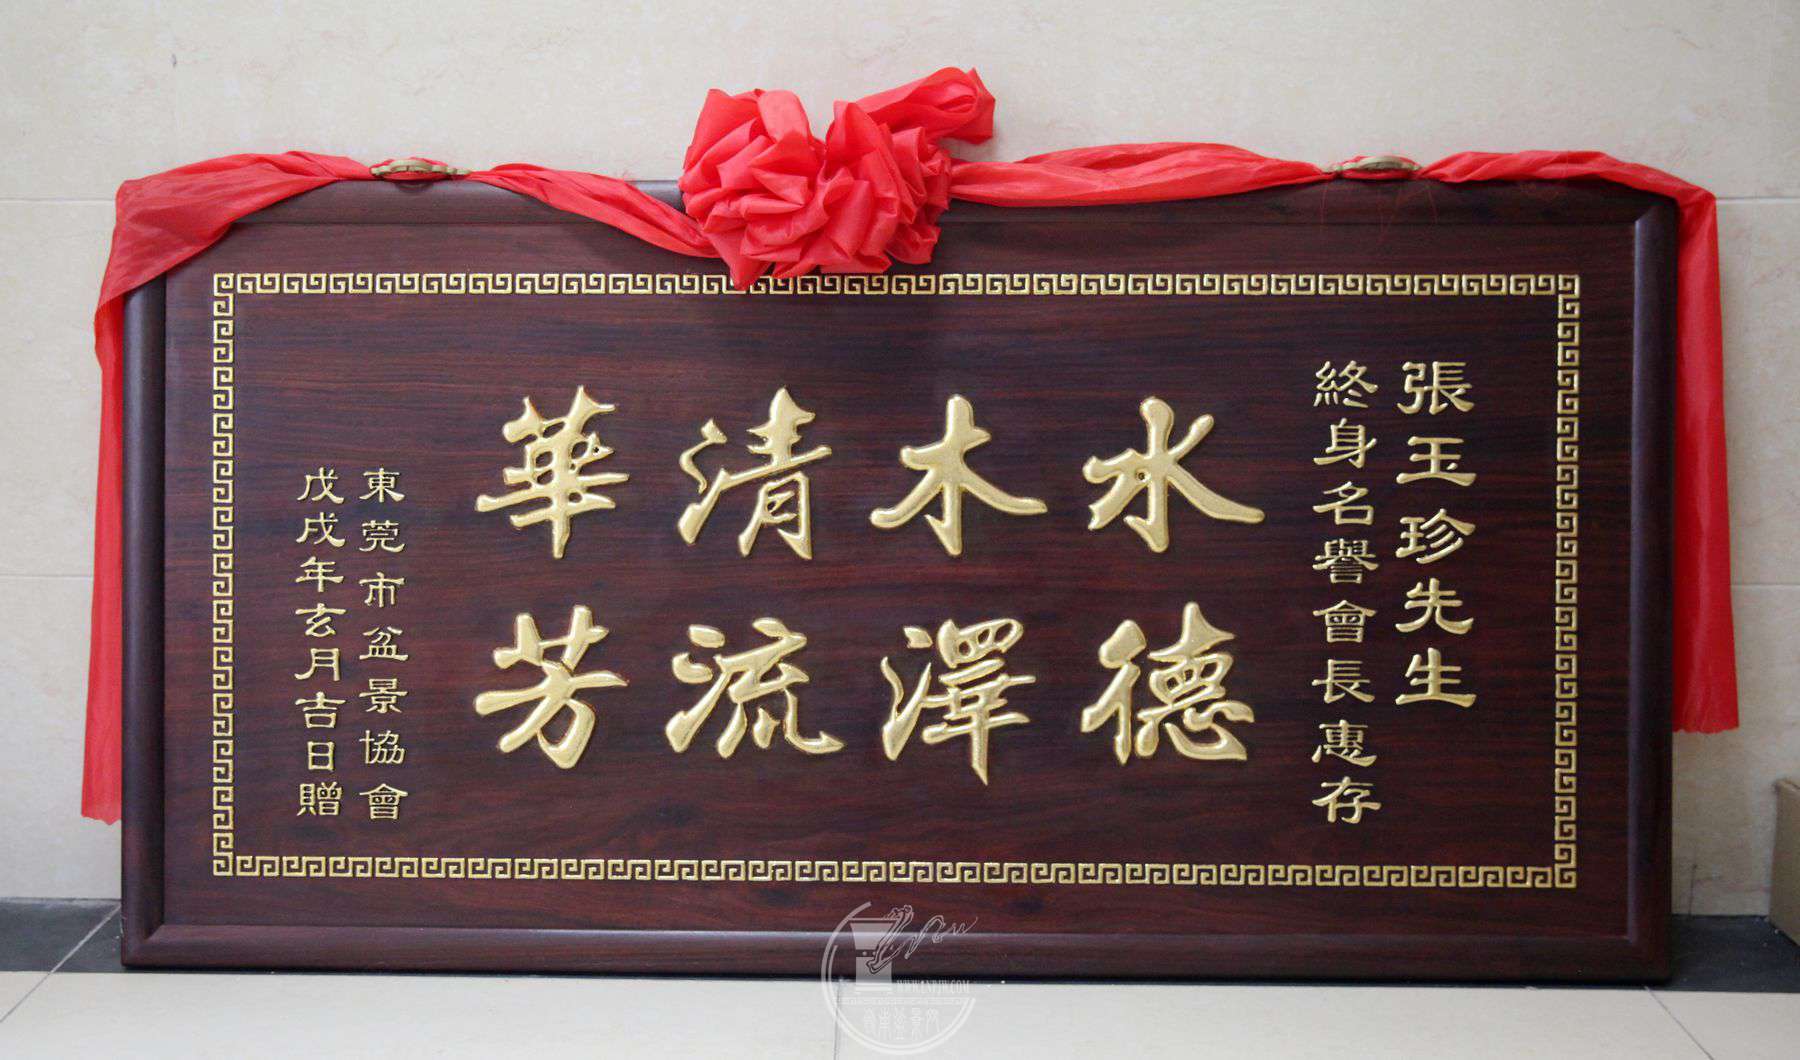 張玉珍先生
終身名譽會長惠存
水木清華
德澤流芳
東莞市盆景協會
戊戌年玄月吉日贈